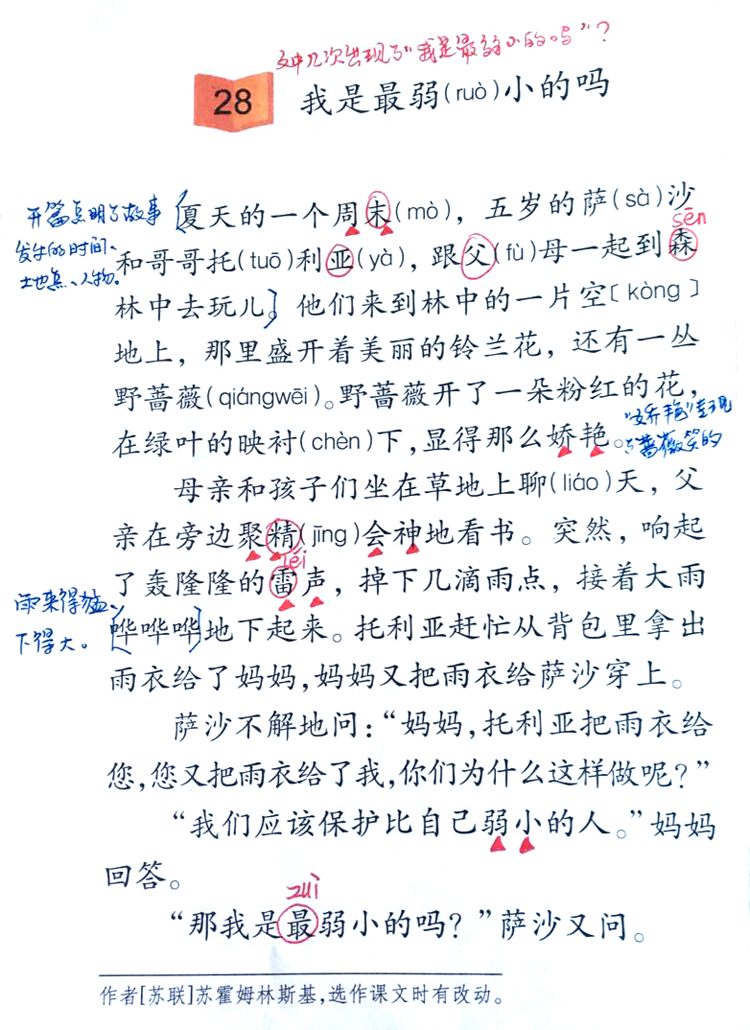 文中几次出现了“我是最弱小的吗”?
28 我是最弱(ruò)小的吗
开篇点明了故事
发生的时间、
地点、人物。
夏天的一个周末(mò),五岁的萨(sà)沙
sēn
和哥哥托(tuō)利亚(yà),跟父(fù)母一起到森
林中去玩儿。他们来到林中的一片空〔kòng〕
地上,那里盛开着美丽的铃兰花,还有一丛
野蔷薇(qiángwēi)。野蔷薇开了一朵粉红的花,
在绿叶的映衬(chèn)下,显得那么娇艳。
“娇艳”表现
蔷薇
的
母亲和孩子们坐在草地上聊(liáo)天,父
亲在旁边聚精(jīng)会神地看书。突然,响起
léi
了轰隆隆的雷声,掉下几滴雨点,接着大雨
雨来得猛、
下得大。
哗哗哗地下起来。托利亚赶忙从背包里拿出
雨衣给了妈妈,妈妈又把雨衣给萨沙穿上。
萨沙不解地问:“妈妈,托利亚把雨衣给
您,您又把雨衣给了我,你们为什么这样做呢?”
“我们应该保护比自己弱小的人。”妈妈
回答。
zuì
“那我是最弱小的吗?”萨沙又问。
作者[苏联]苏霍姆林斯基,选作课文时有改动。